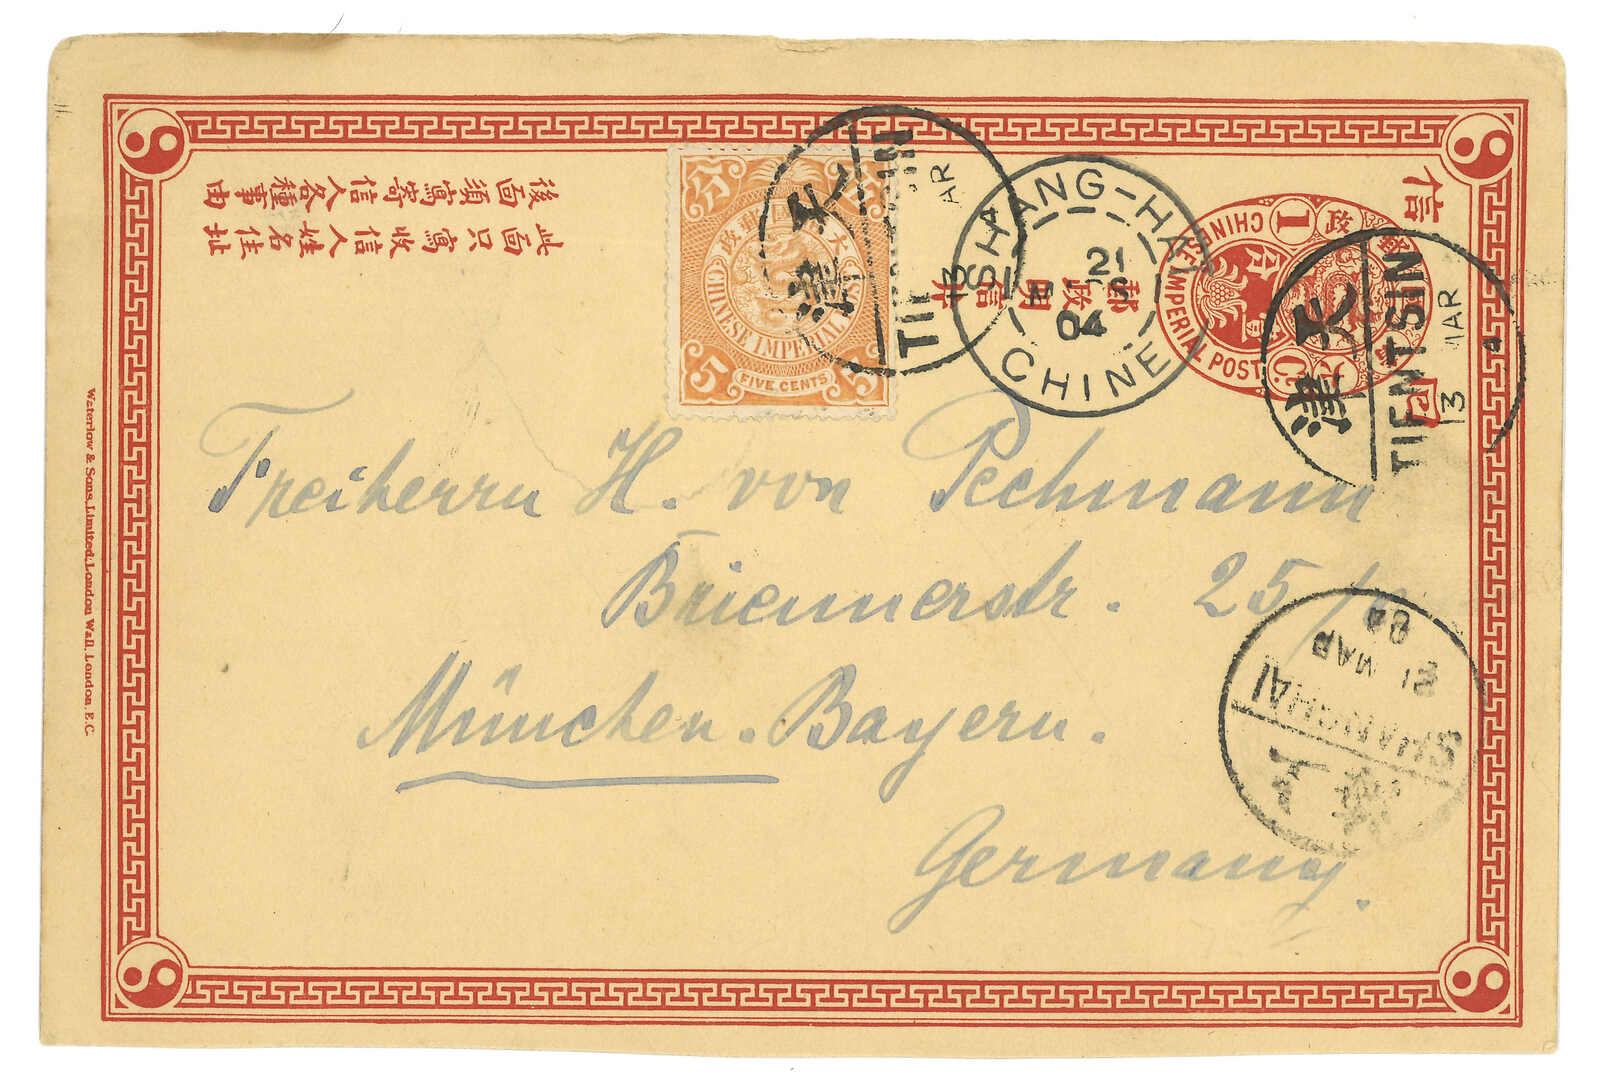 後面須寫寄信人各種事由
此面只寫收信人姓名住址
大清郵政
CHINESE IMPERIAL POST
5 FIVE CENTS 5
大清郵政
CHINESE IMPERIAL POST
1 C.
天津
TIENTSIN
13 MAR 4
天津
TIENTSIN
13 MAR 4
SHANG-HAI
21
MARS
04
CHINE
郵政明信片
Freiherrn H. von Pechmann
Briennerstr. 25
München. Bayern.
Germany.
SHANGHAI
21 MAR
04
上海
Waterlow & Sons, Limited, London Wall, London, E.C.